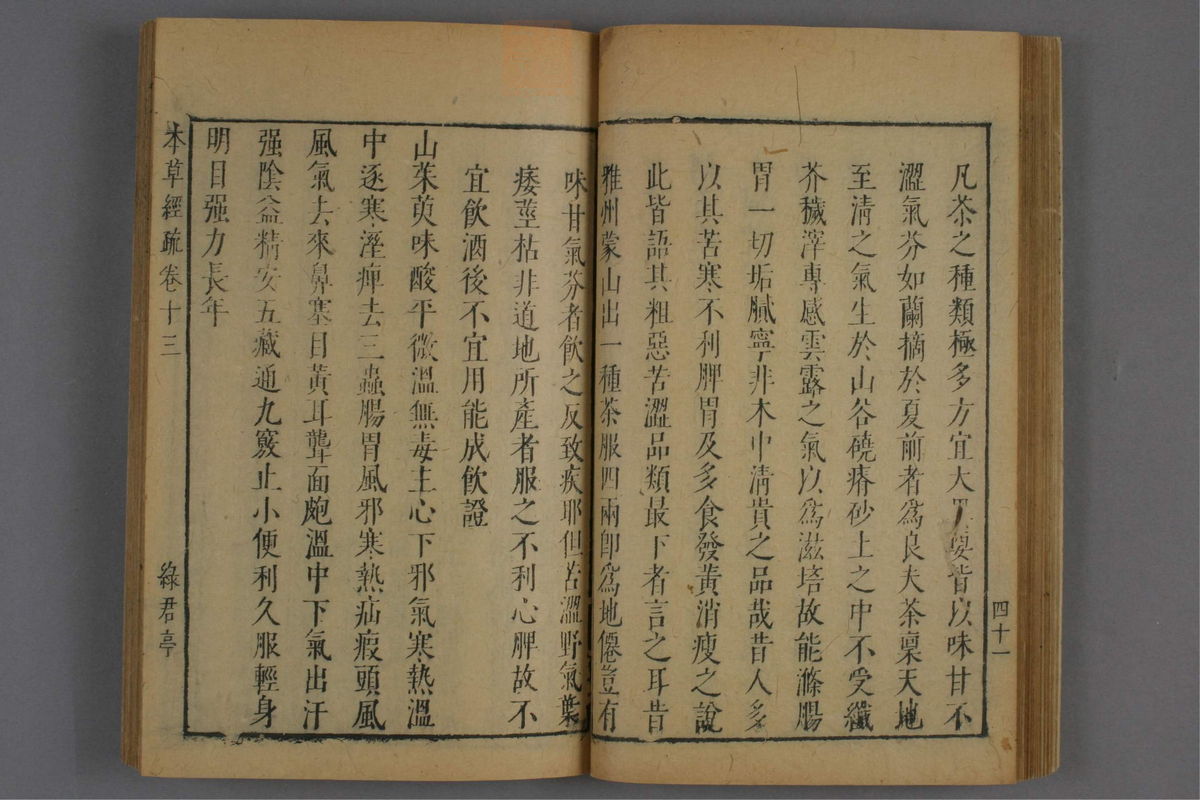 凡茶之種類極多方宜大要皆以味甘不
澀氣芬如蘭摘於夏前者爲良夫茶稟天地
至清之氣生於山谷磽瘠砂土之中不受纖
芥穢滓專感雲露之氣以爲滋培故能滌腸
胃一切垢膩寧非木中清貴之品哉昔人多
以其苦寒不利脾胃及多食發黃消瘦之說
此皆語其粗惡苦澀品類最下者言之耳昔
雅州蒙山出一種茶服四兩卽爲地僊豈有
味甘氣芬者飲之反致疾耶但苦澀野氣葉
痿莖枯非道地所產者服之不利心脾故不
宜飲酒後不宜用能成飲證
山茱萸味酸平微溫無毒主心下邪氣寒熱溫
中逐寒溼痺去三蟲腸胃風邪寒熱疝瘕頭風
風氣去來鼻塞目黃耳聾面皰溫中下氣出汗
强陰益精安五藏通九竅止小便利久服輕身
明目强力長年
本草經疏卷十三
綠君亭
四十一